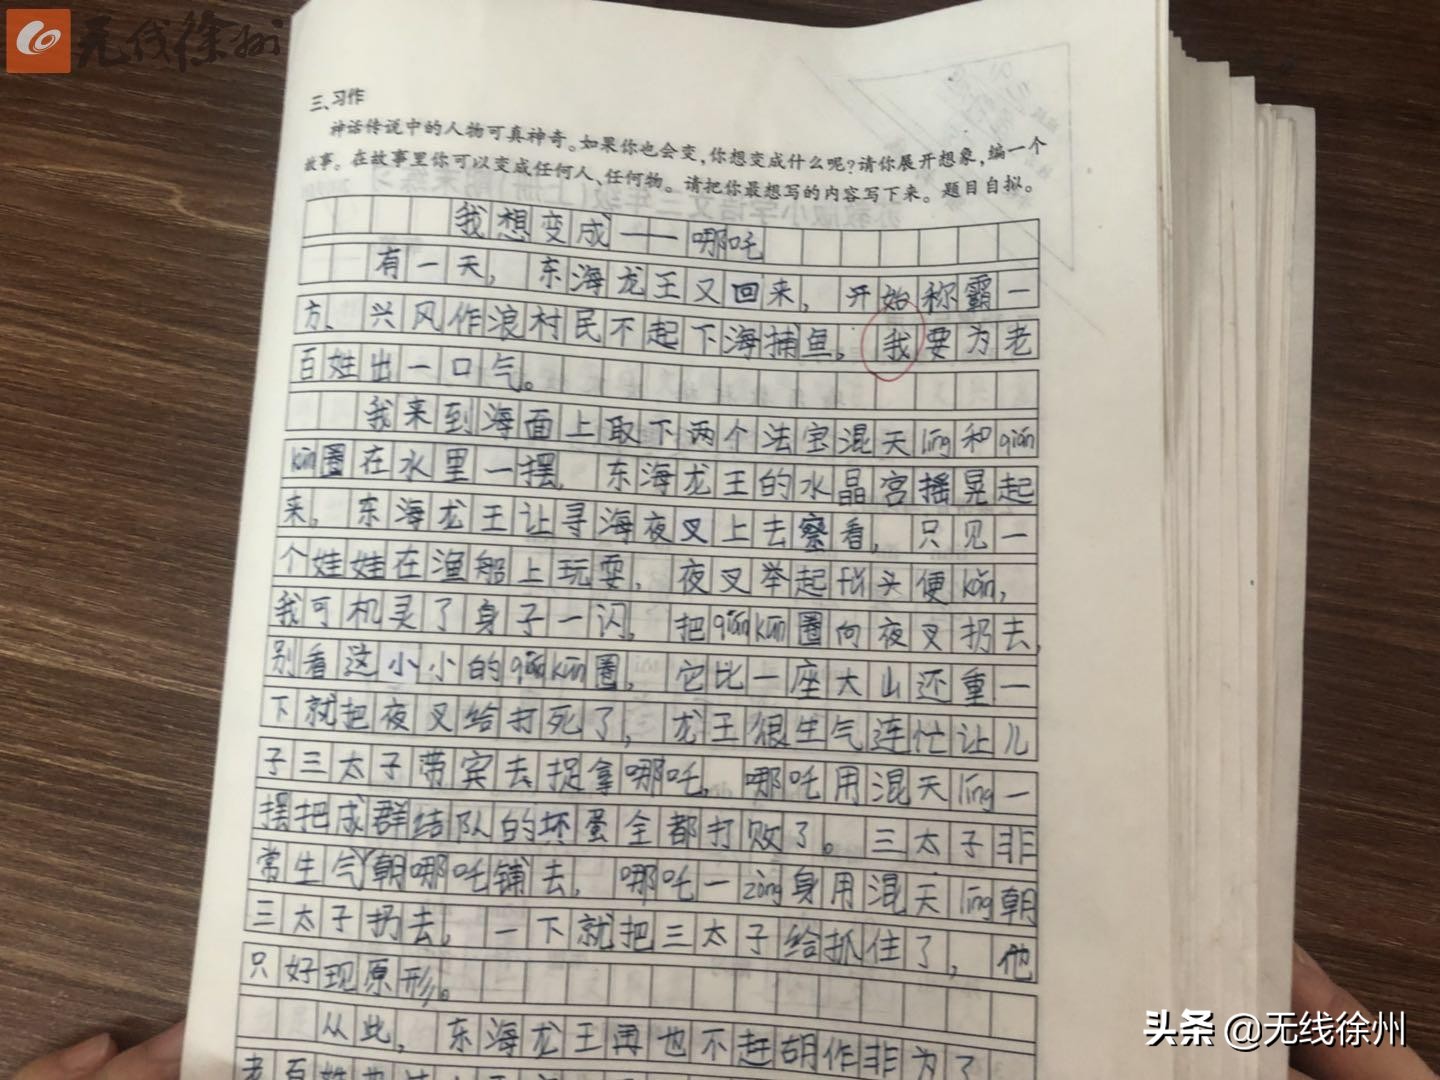 无线徐州
三、习作
神话传说中的人物可真神奇。如果你也会变，你想变成什么呢？请你展开想象，编一个
故事。在故事里你可以变成任何人、任何物。请把你最想写的内容写下来。题目自拟。
我想变成——哪吒
有一天，东海龙王又回来，开始称霸一
方、兴风作浪村民不起下海捕鱼。我要为老
百姓出一口气。
我来到海面上取下两个法宝混天líng和qián
kūn圈在水里一摆，东海龙王的水晶宫摇晃起
来，东海龙王让寻海夜叉上去察看，只见一
个娃娃在渔船上玩耍，夜叉举起fǔ头便kǎn，
我可机灵了身子一闪，把qiánkūn圈向夜叉扔去，
别看这小小的qiánkūn圈，它比一座大山还重一
下就把夜叉给打死了，龙王很生气连忙让儿
子三太子带宾去捉拿哪吒，哪吒用混天líng一
摆把成群结队的坏蛋全都打败了。三太子非
常生气朝哪吒铺去，哪吒一zòng身用混天líng朝
三太子扔去，一下就把三太子给抓住了，他
只好现原形。
从此，东海龙王再也不赶胡作非为了
老百姓
头条 @无线徐州